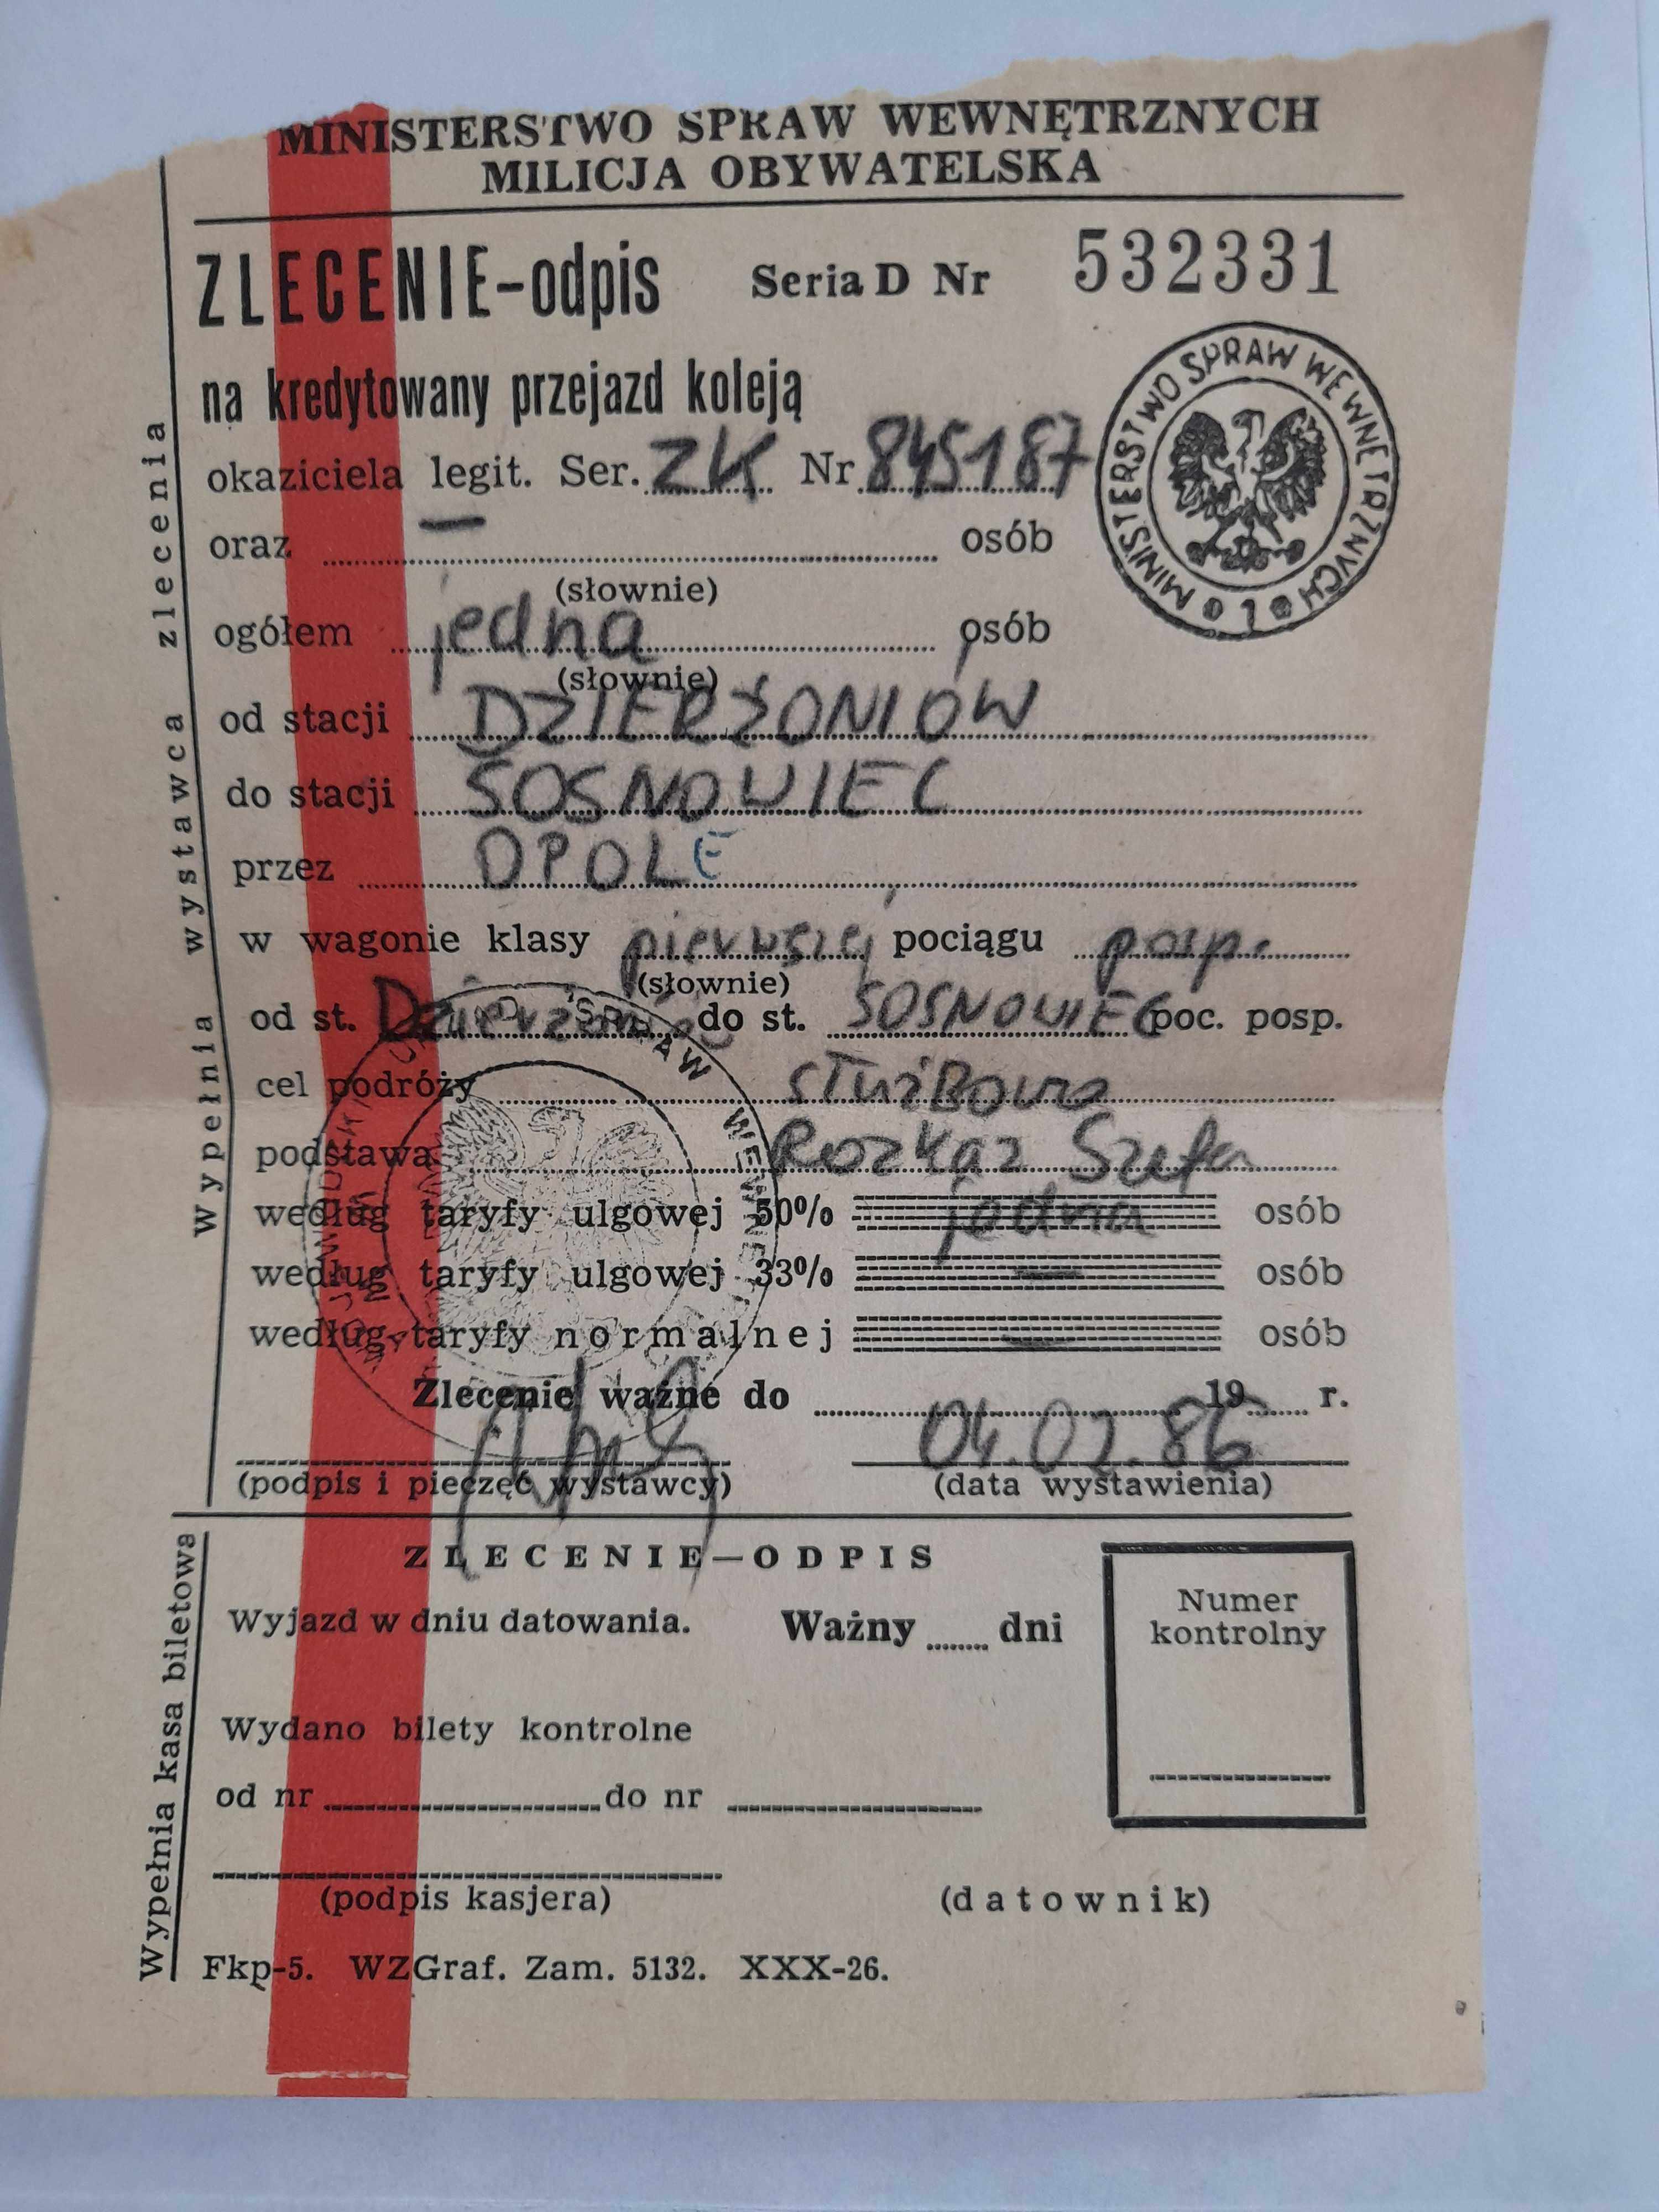 MINISTERSTWO SPRAW WEWNĘTRZNYCH
MILICJA OBYWATELSKA
ZLECENIE-odpis Seria D Nr 532331
na kredytowany przejazd koleją
okaziciela legit. Ser. ZK Nr 845187
oraz — osób
(słownie)
ogółem jedna osób
(słownie)
od stacji DZIERŻONIÓW
do stacji SOSNOWIEC
przez OPOLE
w wagonie klasy pierwszej pociągu posp.
(słownie)
od st. Dzierżoniów do st. SOSNOWIEC poc. posp.
cel podróży służBowa
podstawa Rozkaz Szefa
według taryfy ulgowej 50% jedna osób
według taryfy ulgowej 33% — osób
według taryfy normalnej — osób
Zlecenie ważne do 19 r.
04.02.86
(podpis i pieczęć wystawcy) (data wystawienia)
Wypełnia wystawca zlecenia
MINISTERSTWO SPRAW WEWNĘTRZNYCH 1
SPRAW WEWNĘ
ZLECENIE—ODPIS
Wyjazd w dniu datowania. Ważny dni
Numer
kontrolny
Wydano bilety kontrolne
od nr do nr
(podpis kasjera) (datownik)
Wypełnia kasa biletowa
Fkp-5. WZGraf. Zam. 5132. XXX-26.